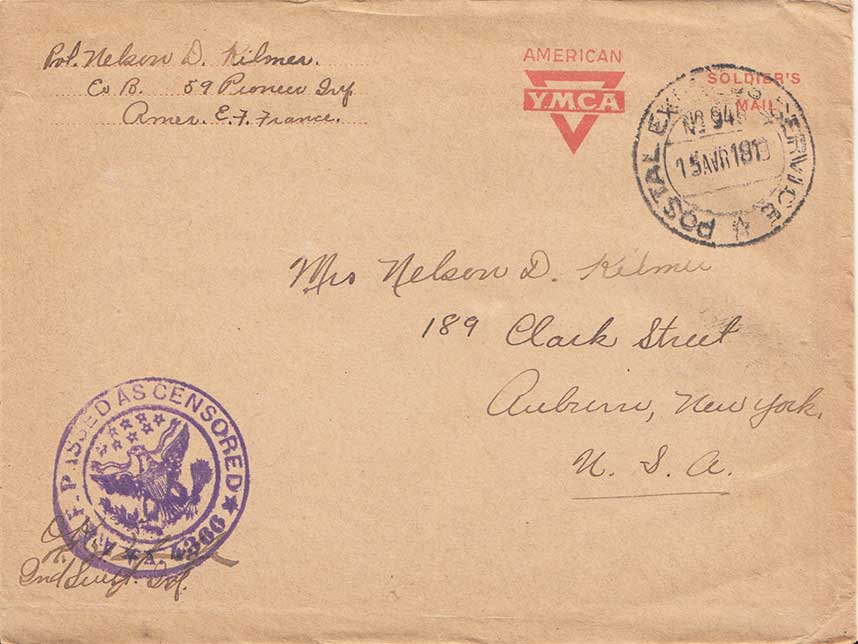 Pvt. Nelson D. Kilmer.
Co B. 59 Pioneer Inf
Amer. E. F. France.
AMERICAN
YMCA
SOLDIER'S
MAIL
POSTAL EXPRESS SERVICE
No 948
15 AVR 1919
Mrs Nelson D. Kilmer
189 Clark Street
Auburn, New York.
U. S. A.
A.E.F. PASSED AS CENSORED
4366
2nd Lieut. Inf.